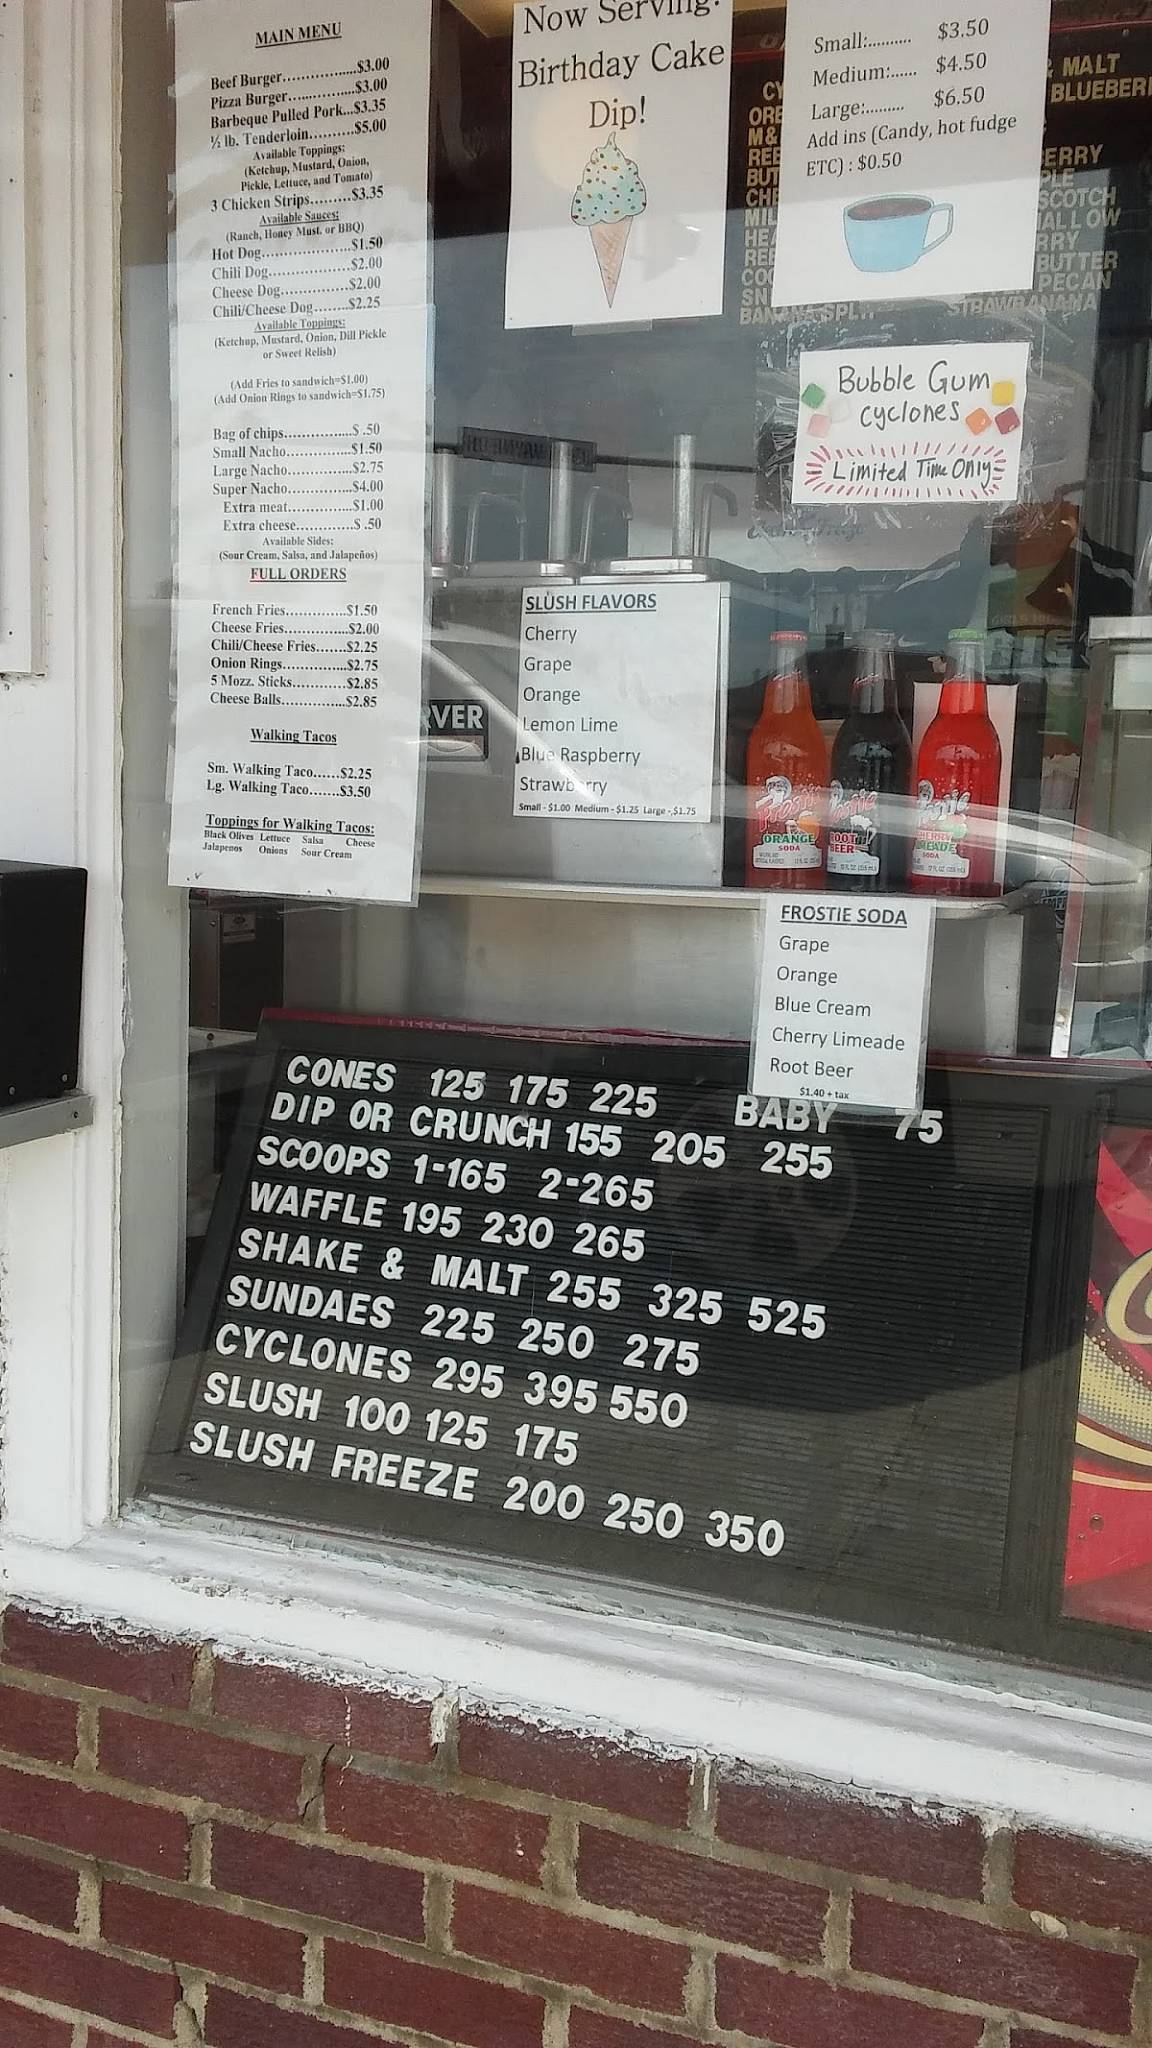 MAIN MENU
Beef Burger..................$3.00
Pizza Burger..................$3.00
Barbeque Pulled Pork...$3.35
½ lb. Tenderloin..........$5.00
Available Toppings:
(Ketchup, Mustard, Onion,
Pickle, Lettuce, and Tomato)
3 Chicken Strips.........$3.35
Available Sauces:
(Ranch, Honey Must. or BBQ)
Hot Dog....................$1.50
Chili Dog..................$2.00
Cheese Dog...............$2.00
Chili/Cheese Dog.......$2.25
Available Toppings:
(Ketchup, Mustard, Onion, Dill Pickle
or Sweet Relish)
(Add Fries to sandwich=$1.00)
(Add Onion Rings to sandwich=$1.75)
Bag of chips...............$ .50
Small Nacho...............$1.50
Large Nacho...............$2.75
Super Nacho...............$4.00
Extra meat...............$1.00
Extra cheese.............$ .50
Available Sides:
(Sour Cream, Salsa, and Jalapeños)
FULL ORDERS
French Fries.............$1.50
Cheese Fries..............$2.00
Chili/Cheese Fries.......$2.25
Onion Rings..............$2.75
5 Mozz. Sticks............$2.85
Cheese Balls..............$2.85
Walking Tacos
Sm. Walking Taco......$2.25
Lg. Walking Taco.......$3.50
Toppings for Walking Tacos:
Black Olives Lettuce Salsa Cheese
Jalapenos Onions Sour Cream
Now Serving:
Birthday Cake
Dip!
Small:.......... $3.50
Medium:...... $4.50
Large:......... $6.50
Add ins (Candy, hot fudge
ETC) : $0.50
& MALT
BANANA SPLIT
STRAWBANANA
PECAN
Bubble Gum
cyclones
Limited Time Only
SLUSH FLAVORS
Cherry
Grape
Orange
Lemon Lime
Blue Raspberry
Strawberry
Small - $1.00 Medium - $1.25 Large - $1.75
Frostie
ORANGE
SODA
ROOT
BEER
CHERRY
LIMEADE
SODA
FROSTIE SODA
Grape
Orange
Blue Cream
Cherry Limeade
Root Beer
$1.40 + tax
CONES 125 175 225 BABY 75
DIP OR CRUNCH 155 205 255
SCOOPS 1-165 2-265
WAFFLE 195 230 265
SHAKE & MALT 255 325 525
SUNDAES 225 250 275
CYCLONES 295 395 550
SLUSH 100 125 175
SLUSH FREEZE 200 250 350